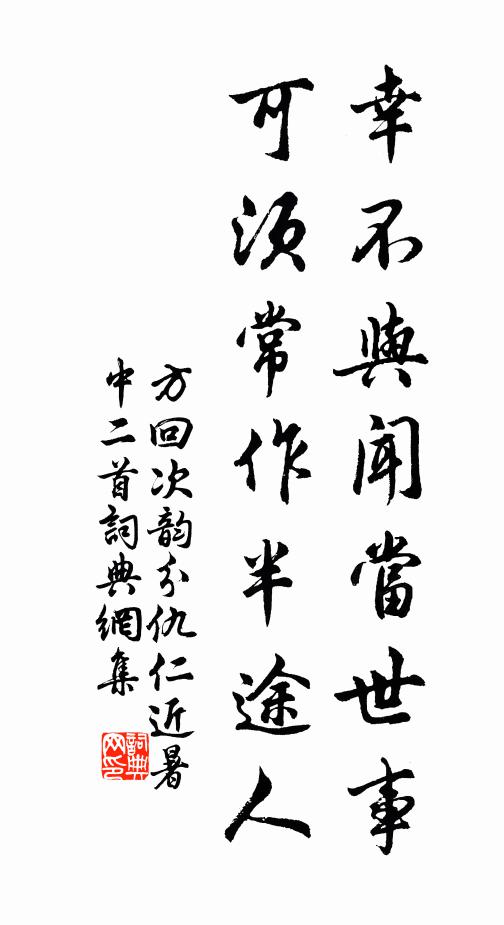 幸不與聞當世事
可須常作半途人
方回次韵分仇仁近暑
中二首詞典網集
詞典
网印